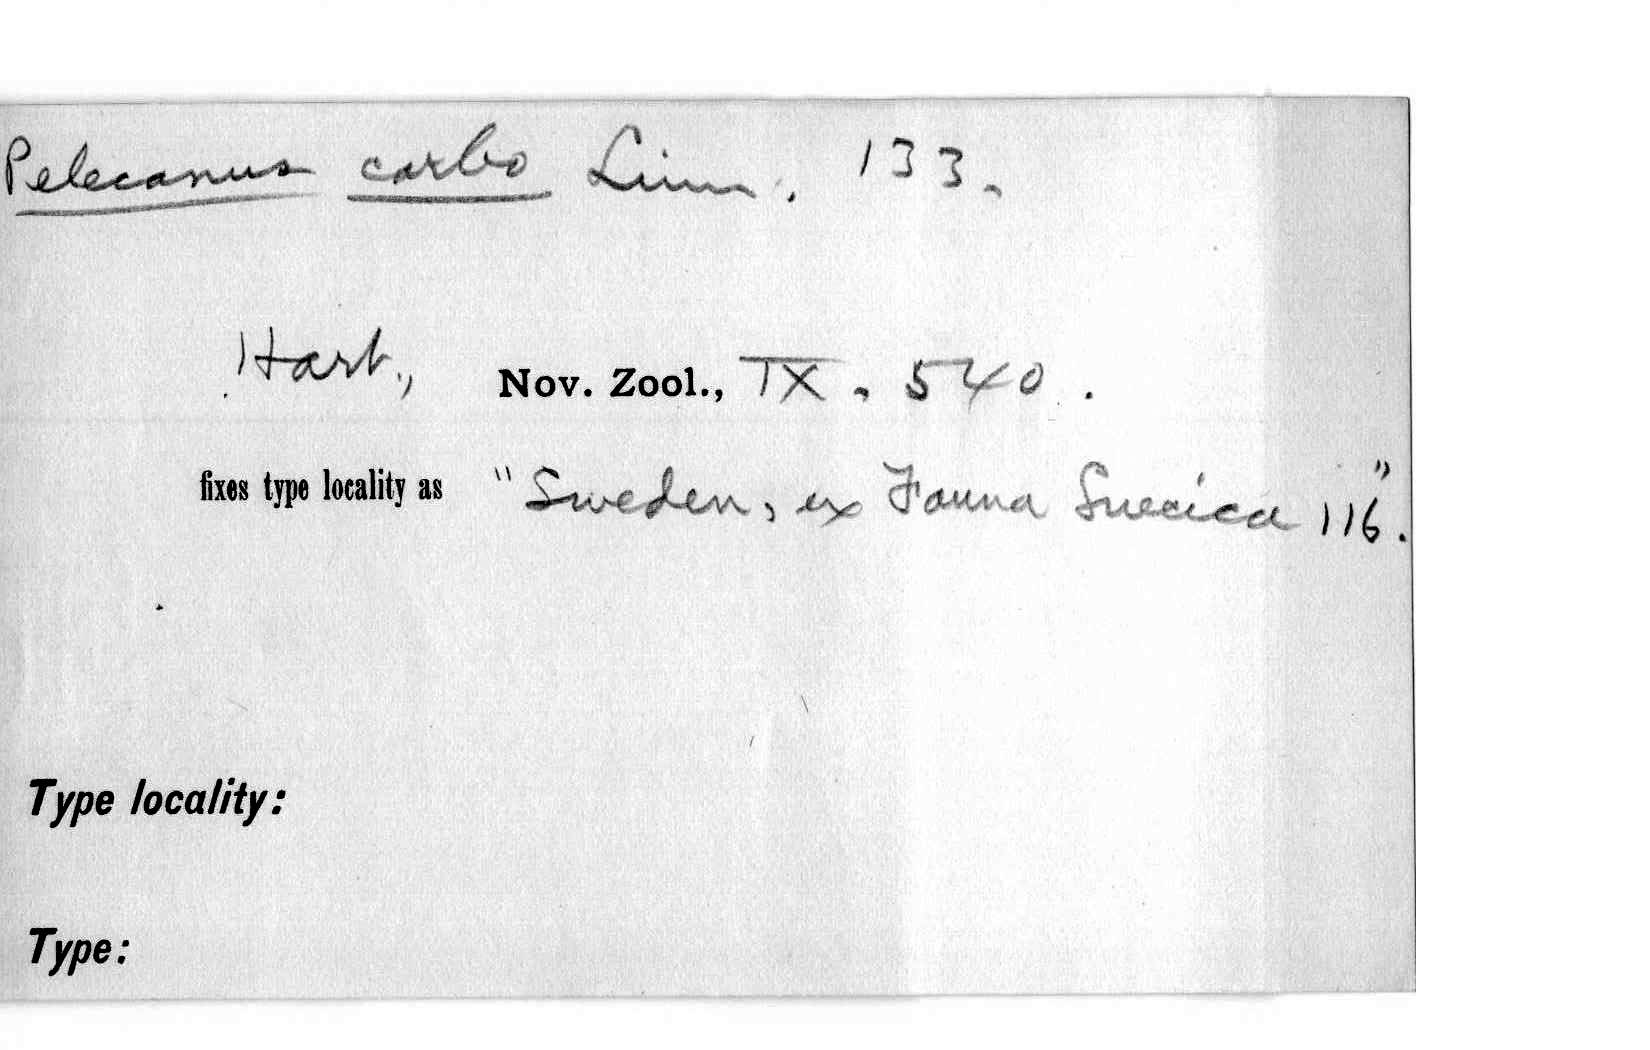 Pelecanus carbo Linn. 133.
Hart., Nov. Zool., IX. 540.
fixes type locality as "Sweden, ex Fauna Suecica 116."
Type locality:
Type: